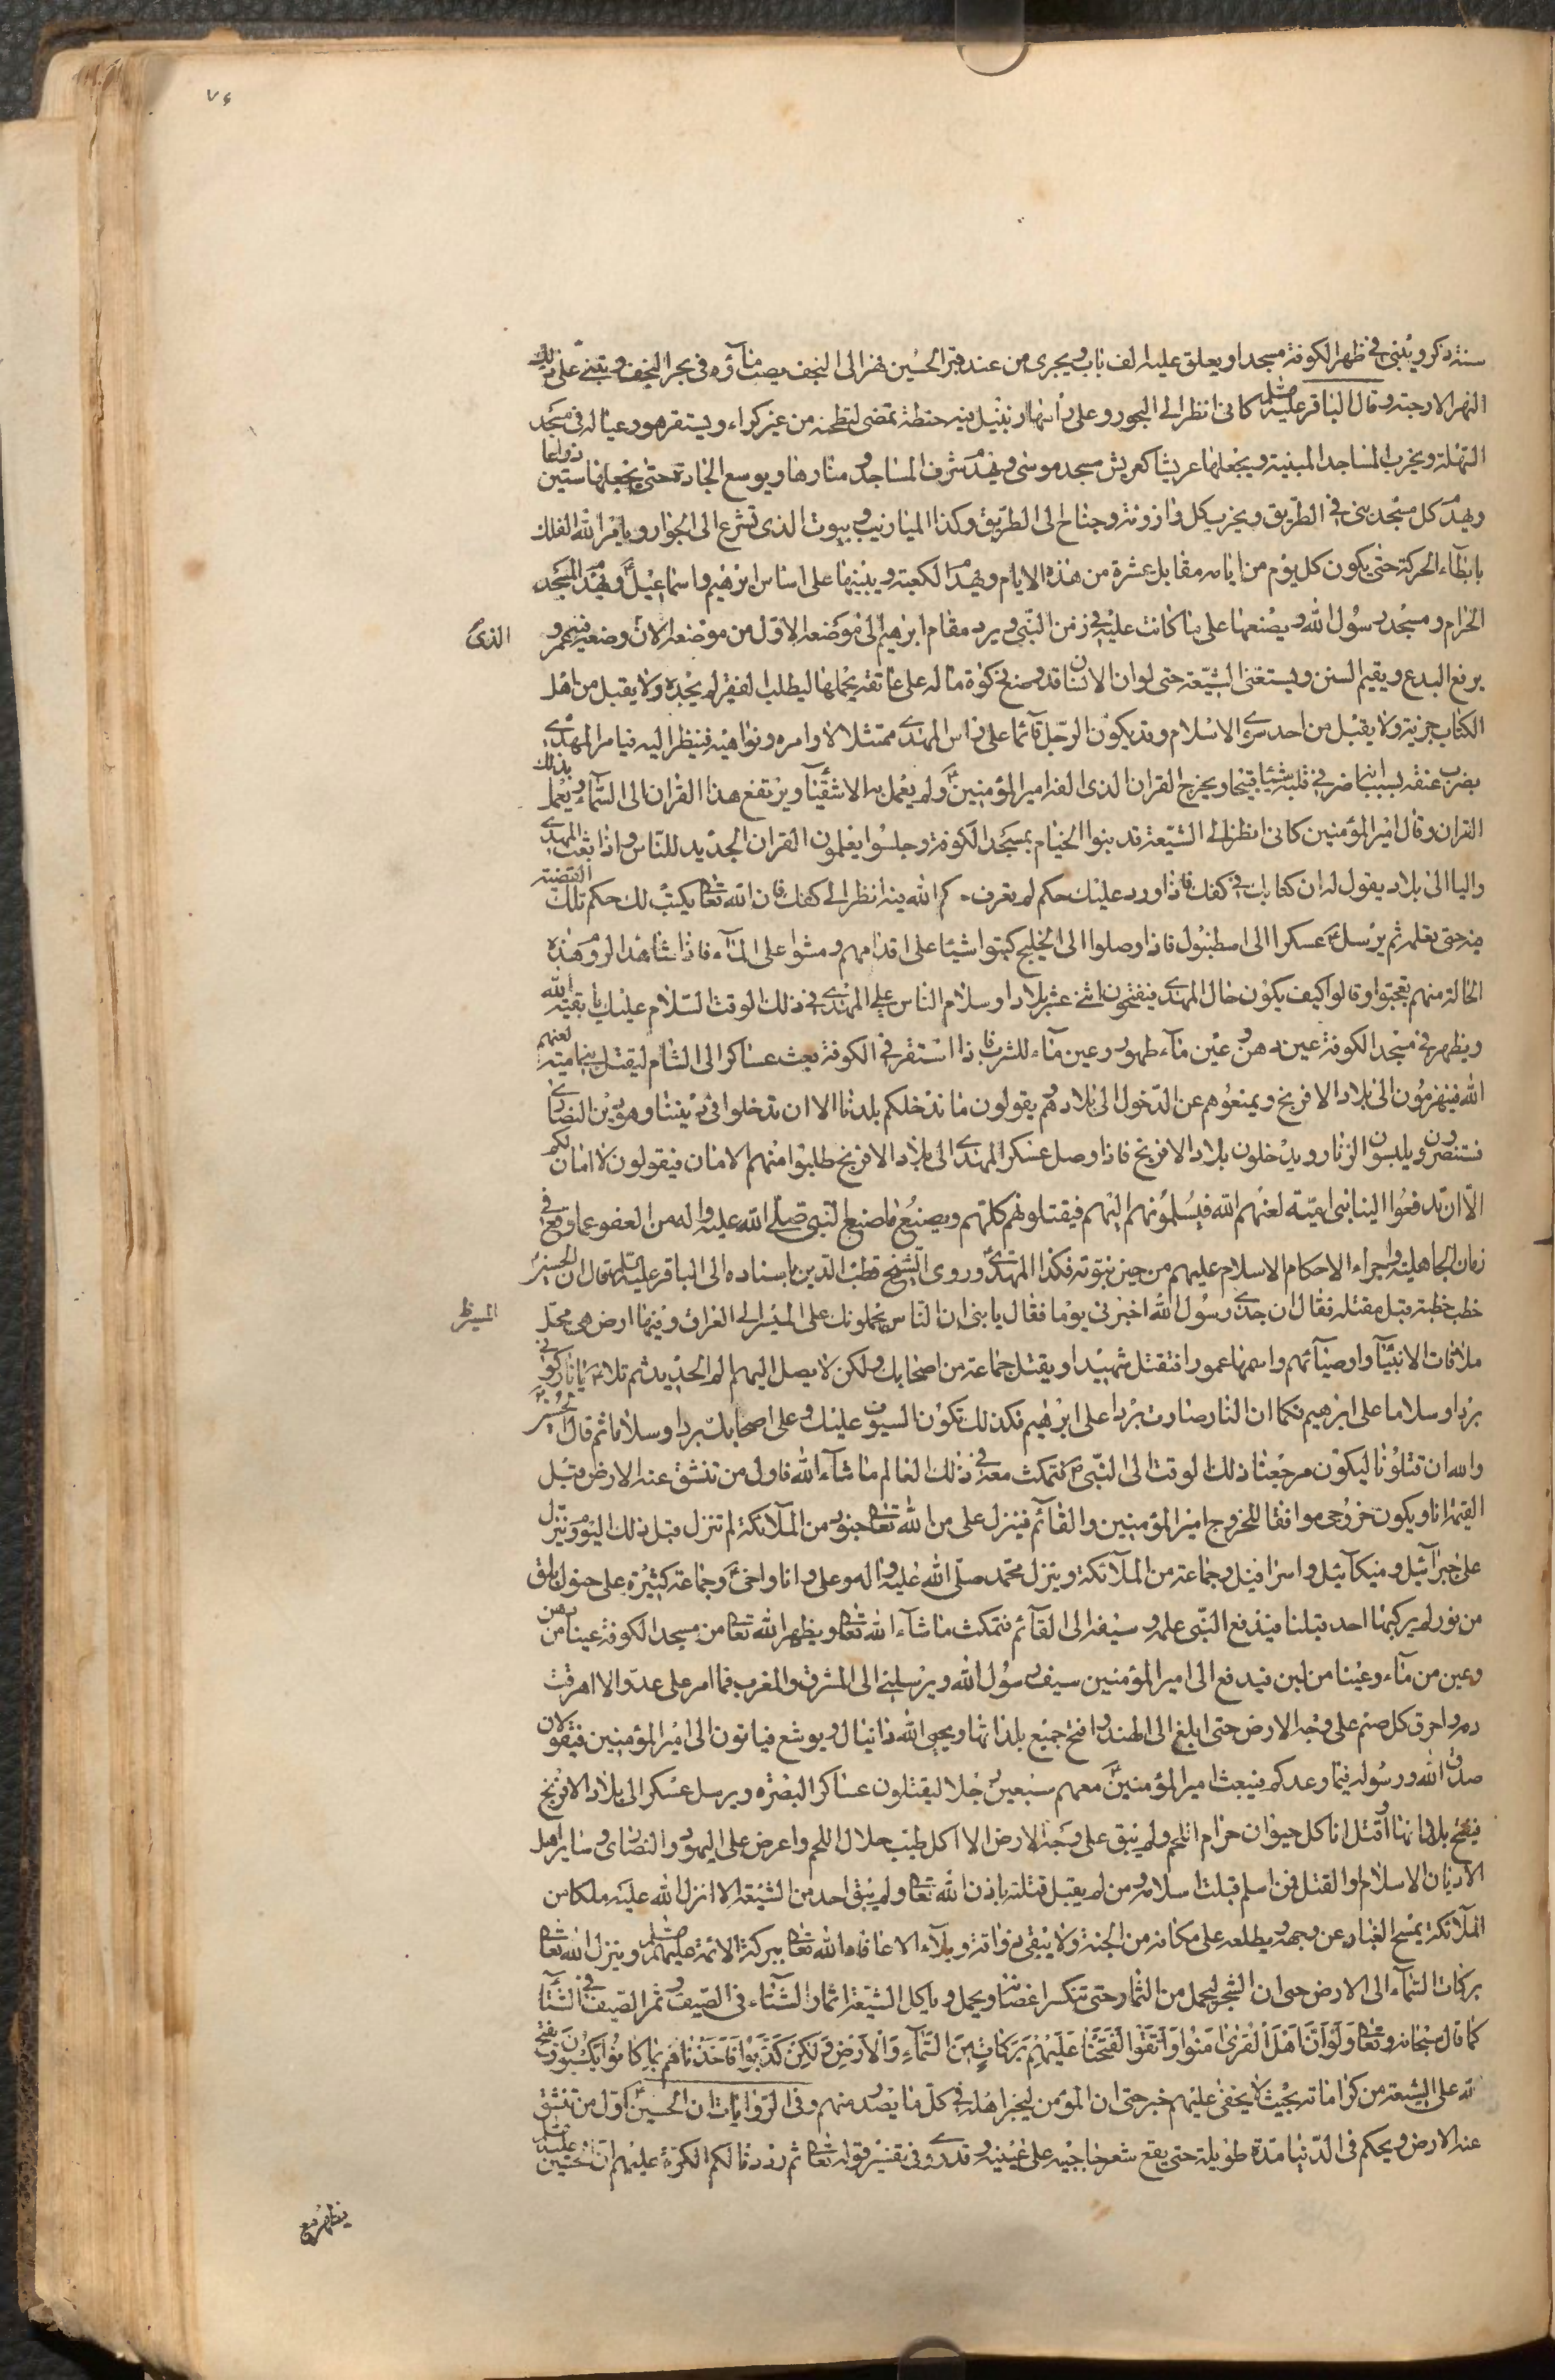 ٧٤
سنة ذكر ويبنى في ظهر الكوفة مسجدا ويعلق عليه الف باب ويجرى من عند قبر الحسين نهرا الى النجف يصب ماؤه في بحر النجف ويبنى على ذلك
النهر الارحية وقال الباقر عليه السلام كانى انظر الى العجوز وعلى رأسها زنبيل فيه حنطة تمضى لتطحنه من غير كراء ويستقر هو وعياله في مسجد
السهلة ويخرب المساجد المبنية ويجعلها عريشا كعريش مسجد موسى ويهدم شرف المساجد ومنارها ويوسع الجادة حتى يجعلها ستين ذراعا
ويهدم كل مسجد بنى في الطريق ويخرب كل وازونة وجناح الى الطريق وكذا الميازيب وبيوت الذى تشرع الى الجوار ويأمر الله الفلك
بابطاء الحركة حتى يكون كل يوم من ايامه مقابل عشرة من هذه الايام ويهدم الكعبة ويبنيها على اساس ابرهيم واسماعيل ويهدم المسجد
الحرام ومسجد رسول الله ويصنعها على ما كانت عليه في زمن النبى ويرد مقام ابرهيم الى موضعه الاول من موضعه الان وضعه فيه عمر و
الذى
يرفع البدع ويقيم السنن ويستغنى الشيعة حتى لو ان الانسان قد وضع زكوة ماله على عاتقه يحملها ليطلب الفقير لم يجده ولا يقبل من اهل
الكتاب جزية ولا يقبل من احد سوى الاسلام وقد يكون الرجل قائما على راس المهدى ممتثلا لاوامره ونواهيه فينظر اليه فيامر المهدى
بضرب عنقه بسبب انه اضمر في قلبه شيئا قبيحا ويخرج القران الذى الفه امير المؤمنين ولم يعمل به الاشقياء ويرتفع هذا القران الى السماء ويعمل بذلك
القران وقال امير المؤمنين كانى انظر الى الشيعة قد بنوا الخيام بمسجد الكوفة وجلسوا يعلمون القران الجديد للناس واذا بعث المهدى
واليا الى بلاد يقول له ان كتابك في كفك فاذا ورد عليك حكم لم تعرف حكم الله فيه انظر الى كفك فان الله تعالى يكتب لك حكم تلك القضية
فيه حتى تعلمه ثم يرسل عسكرا الى اسطنبول فاذا وصلوا الى الخليج كتبوا شيئا على اقدامهم ومشوا على الماء فاذا شاهد الروم هذه
الحالة منهم تعجبوا وقالوا كيف يكون حال المهدى فيفتحون اثنى عشر بلادا وسلام الناس على المهدى في ذلك الوقت السلام عليك يا بقية الله
ويظهر في مسجد الكوفة عين دهن وعين ماء طهور وعين ماء للشرب فاذا استقر في الكوفة بعث عساكر الى الشام ليقتل بنى امية لعنهم
الله فينهزمون الى بلاد الافرنج ويمنعوهم عن الدخول الى بلادهم يقولون ما ندخلكم بلدنا الا ان تدخلوا في ديننا وهو دين النصارى
فتنصرون ويلبسون الزنار ويدخلون بلاد الافرنج فاذا وصل عسكر المهدى الى بلاد الافرنج طلبوا منهم الامان فيقولون لا امان لكم
الا ان تدفعوا الينا بنى امية لعنهم الله فيسلمونهم اليهم فيقتلونهم كلهم ويصنع ما صنع النبى صلى الله عليه واله من العفو عما وقع في
زمان الجاهلية واجراء الاحكام الاسلام عليهم من حين نبوته فكذا المهدى وروى الشيخ قطب الدين باسناده الى الباقر عليه السلام قال ان الحسين
خطب خطبة قبل مقتله فقال ان جدى رسول الله اخبرنى يوما فقال يا بنى ان الناس يحملونك على المسير الى العراق وفيها ارض هى محل
ملاقات الانبياء واوصيائهم واسمها عمورا فتقتل شهيدا ويقتل جماعة من اصحابك ولكن لا يصل اليهم الم الحديد ثم تلا يا نار كونى
بردا وسلاما على ابرهيم فكما ان النار صارت بردا على ابرهيم فكذلك تكون السيوف عليك وعلى اصحابك بردا وسلاما ثم قال الحسين
والله ان قتلونا ليكون مرجعنا ذلك الوقت الى النبى فنمكث معه في ذلك العالم ما شاء الله فاول من تنشق عنه الارض قبل
القيمة انا ويكون خروجى موافقا لخروج امير المؤمنين والقائم فينزل على من الله تعالى جنود من الملائكة لم تنزل قبل ذلك اليوم وينزل
على جبرائيل وميكائيل واسرافيل وجماعة من الملائكة وينزل محمد صلى الله عليه واله وعلى وانا واخى وجماعة كثيرة على خيول بلق
من نور لم يركبها احد قبلنا فيدفع النبى علمه وسيفه الى القائم فنمكث ما شاء الله تعالى ويظهر الله تعالى من مسجد الكوفة عينا من دهن
وعين من ماء وعينا من لبن فيدفع الى امير المؤمنين سيف رسول الله ويرسلنى الى المشرق والمغرب فما امر على عدو الا اهرقت
دمه واحرق كل صنم على وجه الارض حتى ابلغ الى الهند وافتح جميع بلدانها ويحيى الله دانيال ويوشع فياتون الى امير المؤمنين فيقولان
صدق الله ورسوله فيما وعدكم فيبعث امير المؤمنين معهم سبعين رجلا ليقتلون عساكر البصرة ويرسل عسكر الى بلاد الافرنج
فيفتح بلدانها واقتل انا كل حيوان حرام اللحم ولم يبق على وجه الارض الا اكل طيب حلال اللحم واعرض على اليهود والنصارى وساير اهل
الاديان الاسلام او القتل فمن اسلم قبلت اسلامه ومن لم يقبل قتلته باذن الله تعالى ولم يبق احد من الشيعة الا انزل الله عليه ملكا من
الملائكة يمسح الغبار عن وجهه ويطلعه على مكانه من الجنة ولا يبقى ذو افة وبلاء الا عافاه الله تعالى ببركة الائمة عليهم السلم وينزل الله تعالى
بركات السماء الى الارض حتى ان الشجر ليحمل من الثمار حتى تنكسر اغصانه ويحمل وياكل الشيعة اثمار الشتاء في الصيف وثمر الصيف في الشتاء
كما قال سبحانه وتعالى وَلَوْ اَنَّ اَهْلَ الْقُرىٰ امَنُوا وَاتَّقَوْا لَفَتَحْنَا عَلَيْهِمْ بَرَكَاتٍ مِنَ السَّمَآءِ وَالْاَرْضِ وَلٰكِنْ كَذَّبُوا فَاَخَذْنَاهُمْ بِمَا كَانُوا يَكْسِبُونَ يفتح
الله على الشيعة من كراماته بحيث لا يخفى عليهم خبر حتى ان المؤمن ليخبر اهله في كل ما يصدر منهم وفي الروايات ان الحسين اول من تنشق
عنه الارض ويحكم في الدنيا مدة طويلة حتى يقع شعر حاجبيه على عينيه وقد روى في تفسير قوله تعالى ثم رددنا لكم الكرة عليهم ان الحسين عليه السلم
يظهر مع